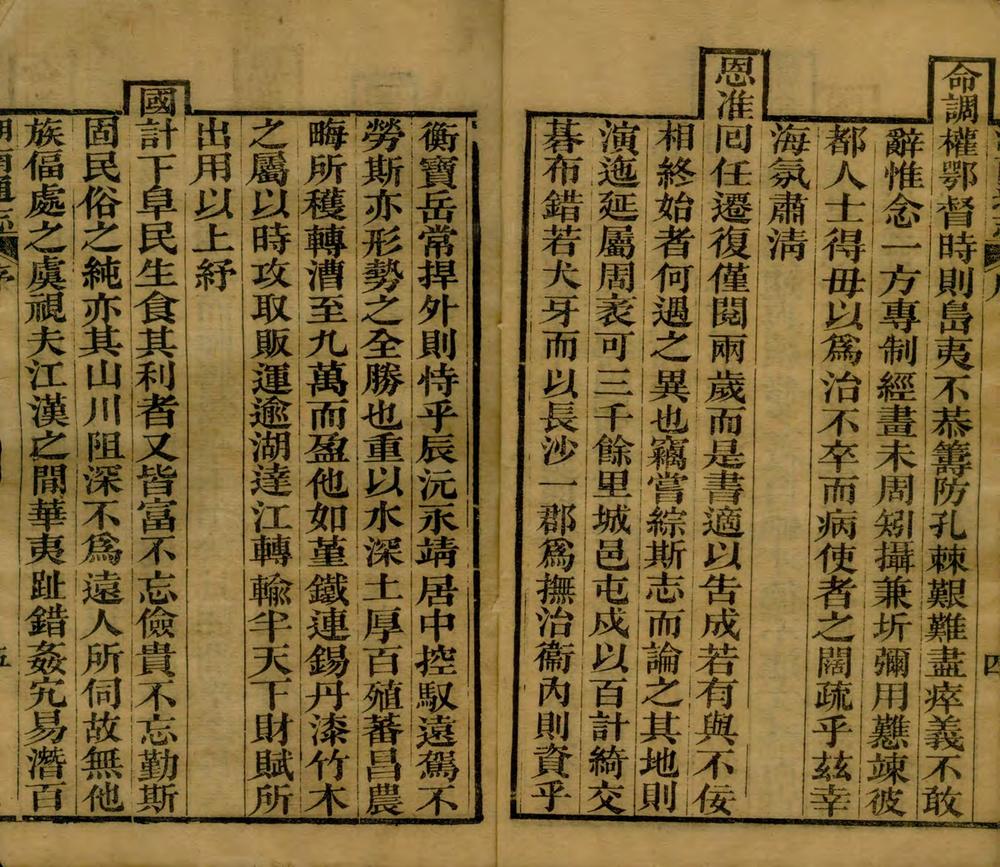 命調權鄂督時則島夷不恭籌防孔棘艱難盡瘁義不敢
辭惟念一方專制經畫未周矧攝兼圻彌用戁竦彼
都人士得毋以爲治不卒而病使者之闊疏乎茲幸
海氛肅淸
恩准囘任遷復僅閱兩歲而是書適以告成若有與不佞
相終始者何遇之異也竊嘗綜斯志而論之其地則
演迤延屬周袤可三千餘里城邑屯戍以百計綺交
碁布錯若犬牙而以長沙一郡爲撫治衞內則資乎
衡寶岳常捍外則恃乎辰沅永靖居中控馭遠駕不
勞斯亦形勢之全勝也重以水深土厚百殖蕃昌農
晦所穫轉漕至九萬而盈他如堇鐵連錫丹漆竹木
之屬以時攻取販運逾湖達江轉輸半天下財賦所
出用以上紓
國計下阜民生食其利者又皆富不忘儉貴不忘勤斯
固民俗之純亦其山川阻深不爲遠人所伺故無他
族偪處之虞視夫江漢之閒華夷趾錯姦宄易潛百